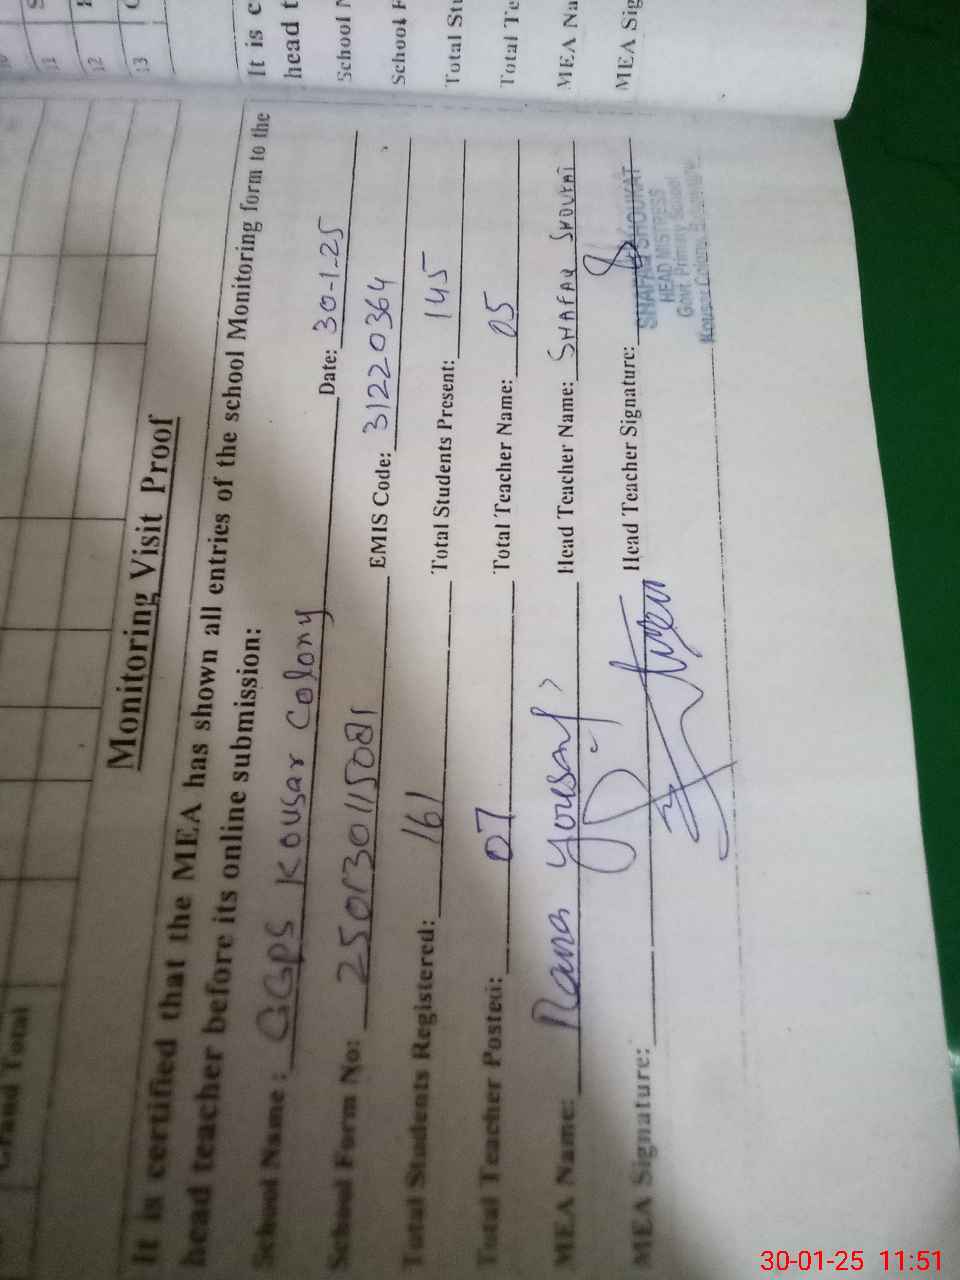 Grand Total
11
12
13
Monitoring Visit Proof
It is certified that the MEA has shown all entries of the school Monitoring form to the
head teacher before its online submission:
School Name: GGPS Kousar Colony Date: 30-1-25
School Form No: EMIS Code: 31220364
Total Students Registered: 161 Total Students Present: 145
Total Teacher Posted: 07 Total Teacher Name: 05
MEA Name: Rana Yousaf Head Teacher Name: SHAFAQ SHOUKAT
MEA Signature: Head Teacher Signature:
SHAFAQ SHOUKAT
HEAD MISTRESS
Govt. Primary School
Kousar Colony,
It is c
head t
School N
School F
Total Stu
Total Te
MEA Na
MEA Sig
30-01-25 11:51